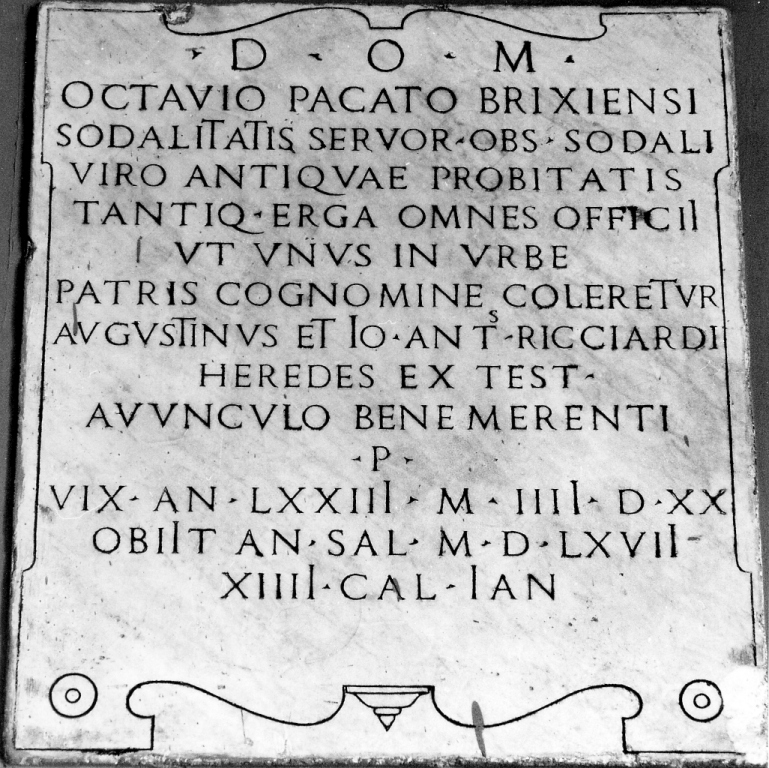 D · O · M ·
OCTAVIO PACATO BRIXIENSI
SODALITATIS SERVOR · OBS · SODALI
VIRO ANTIQVAE PROBITATIS
TANTIQ · ERGA OMNES OFFICII
VT VNVS IN VRBE
PATRIS COGNOMINE COLERETVR
AVGVSTINVS ET IO · ANTS · RICCIARDI
HEREDES EX TEST ·
AVVNCVLO BENEMERENTI
· P ·
VIX · AN · LXXIIII · M · IIII · D · XX
OBIIT AN · SAL · M · D · LXVII ·
XIIII · CAL · IAN